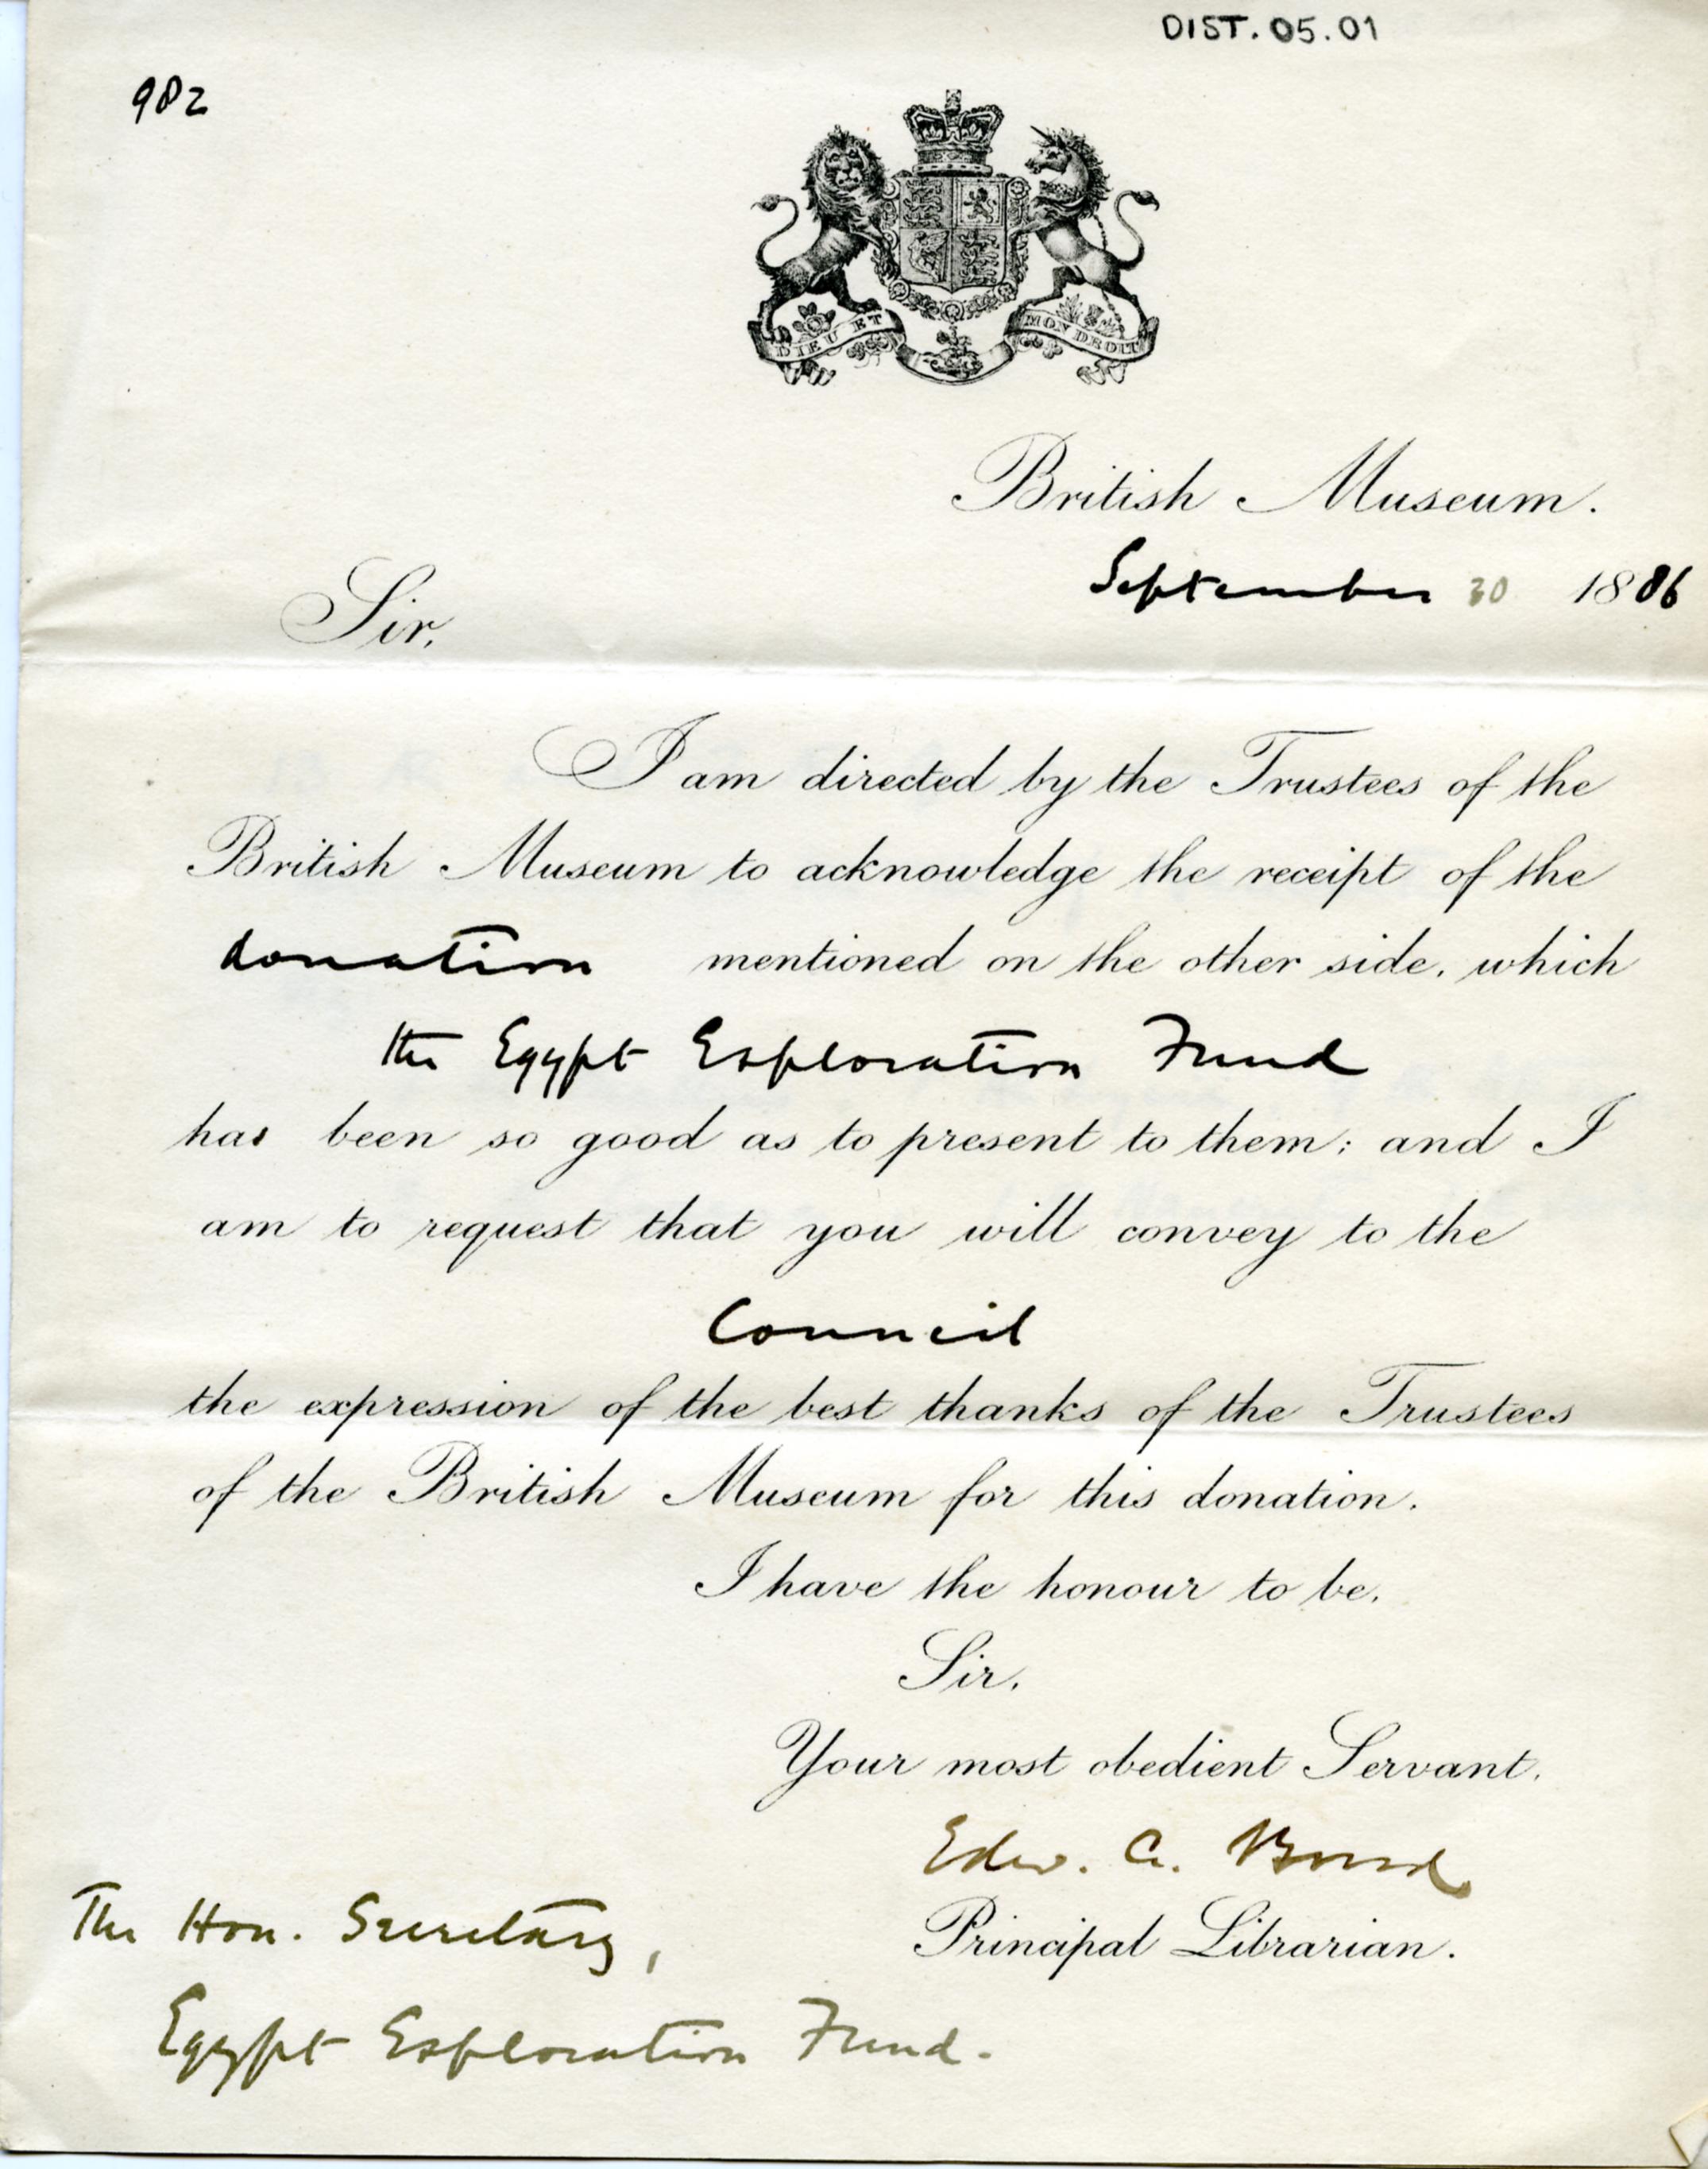 DIST.05.01
982
DIEU ET MON DROIT
British Museum.
September 30 1886
Sir,
I am directed by the Trustees of the
British Museum to acknowledge the receipt of the
donation mentioned on the other side, which
the Egypt Exploration Fund
has been so good as to present to them; and I
am to request that you will convey to the
Council
the expression of the best thanks of the Trustees
of the British Museum for this donation.
I have the honour to be,
Sir,
Your most obedient Servant,
Edw. A. Bond
Principal Librarian.
The Hon. Secretary,
Egypt Exploration Fund.